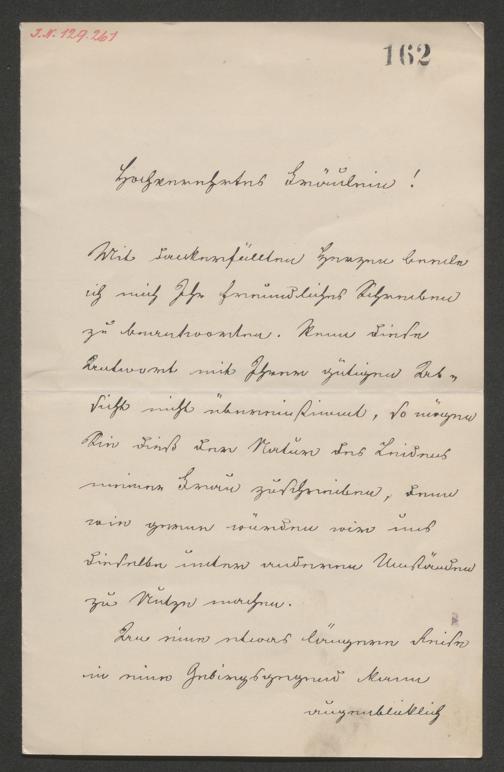 J.N. 129.261
162
Hochverehrtes Fräulein!
Mit dankerfülltem Herzen beeile
ich mich Ihr freundliches Schreiben
zu beantworten. Wenn diese
Antwort mit Ihrer gütigen Ab„
sicht nicht übereinstimmt, so mögen
Sie dieß der Natur des Leidens
meiner Frau zuschreiben, denn
wie gerne würden wir uns
dieselbe unter anderen Umständen
zu Nutze machen.
An eine etwas längere Reise
in eine Gebirgsgegend kann
augenblicklich